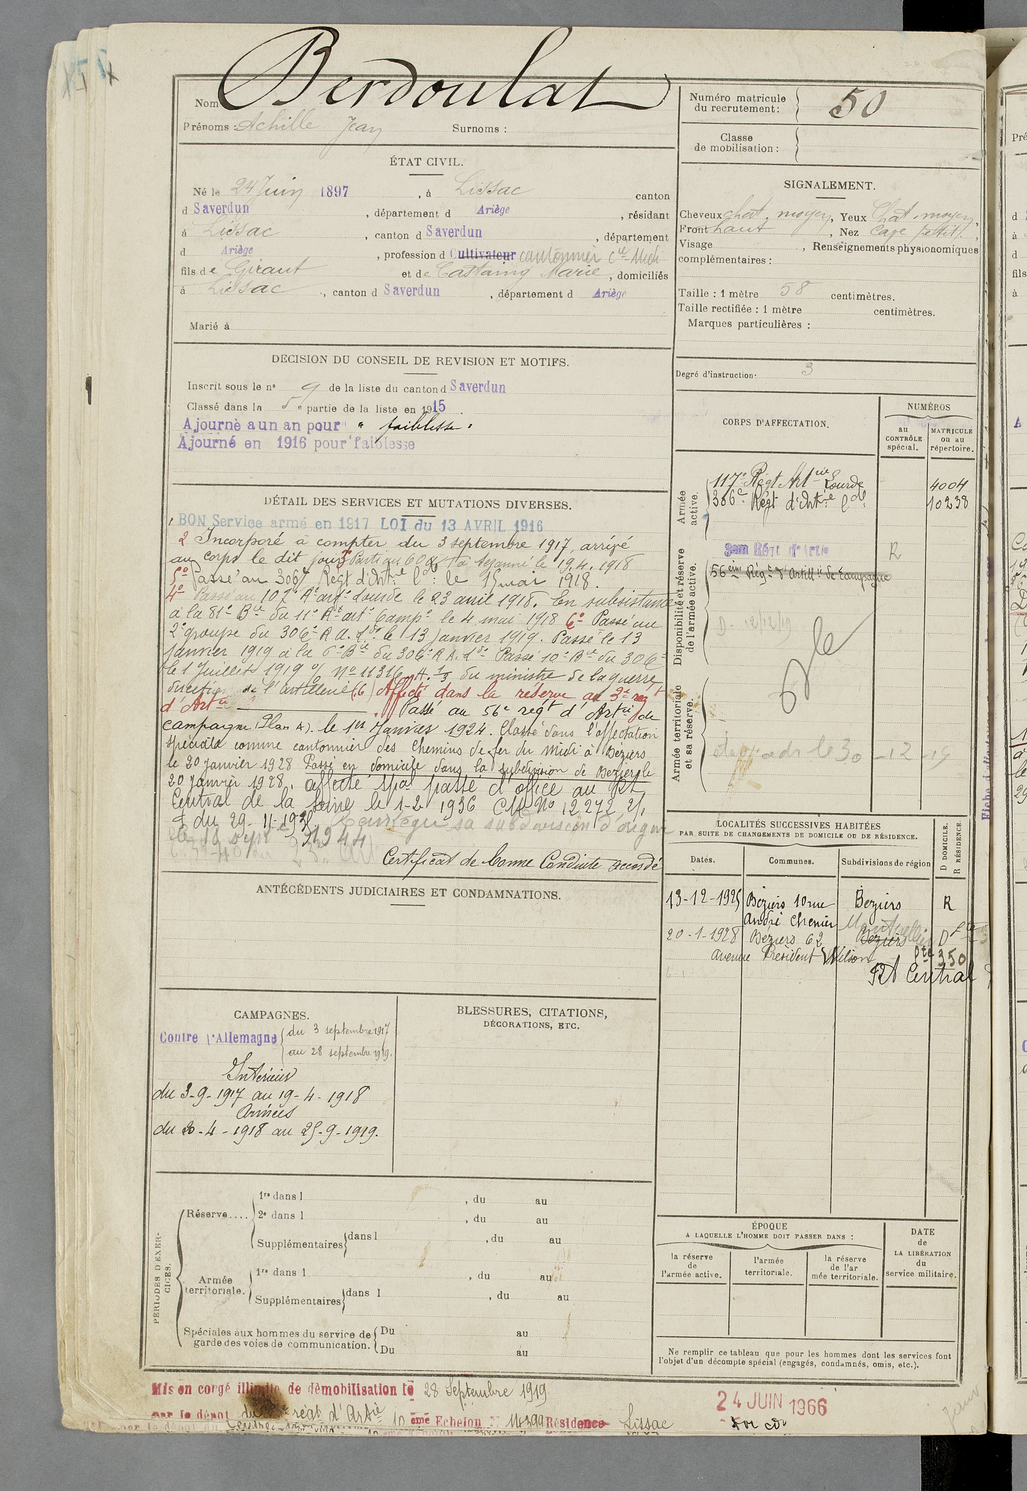 Berdoulat
Nom
Prénoms : Achille Jean Surnoms :
Numéro matricule du recrutement : 50
Classe de mobilisation :
ÉTAT CIVIL.
Né le 24 Juin 1897, à Lissac canton
d Saverdun, département d Ariège, résidant
à Lissac, canton d Saverdun, département
d Ariège, profession d Cultivateur cantonnier
fils de Giraut et de Castaing Marie, domiciliés
à Lissac, canton d Saverdun, département d Ariège
Marié à
SIGNALEMENT.
Cheveux chat. moyen, Yeux Chat. moyen
Front haut, Nez
Visage, Renseignements physionomiques
complémentaires :
Taille : 1 mètre 58 centimètres.
Taille rectifiée : 1 mètre centimètres.
Marques particulières :
Degré d'instruction : 3
DÉCISION DU CONSEIL DE REVISION ET MOTIFS.
Inscrit sous le n° 9 de la liste du canton d Saverdun
Classé dans la 5e partie de la liste en 1915
Ajourné a un an pour " faiblesse "
Ajourné en 1916 pour faiblesse
CORPS D'AFFECTATION.
NUMÉROS
au CONTRÔLE spécial.
MATRICULE ou au répertoire.
Armée active.
117e Régt Artie Lourde 4004
306e Régt d'Artie Lde 10238
Disponibilité et réserve de l'armée active.
3em Régt d'Artie R
56ème Régt d'Artillie de Campagne
Armée territoriale et sa réserve.
le 30-12-19
DÉTAIL DES SERVICES ET MUTATIONS DIVERSES.
BON Service armé en 1917 LOI du 13 AVRIL 1916
Incorporé à compter du 3 septembre 1917, arrivé
au corps le dit jour le 19.4.1918
5° Passé au 306e Régt d'Artie Lde le 15 mai 1918.
4° Passé au 107e R art lourde le 23 avril 1918. En subsistance
à la 81e Bie du 11e R art Camp. le 4 mai 1918 6° Passé au
2e groupe du 306e R.A.Lde le 13 janvier 1919. Passé le 13
janvier 1919 à la 6e Bie du 306e R.A.Lde Passé 10e Bie du 306e
le 1 Juillet 1919 du ministre de la guerre
direction de l'artillerie (6) Affecté dans la réserve au 3e rég
d'Artie Passé au 56e régt d'Artie de
campagne (Plan A). le 1er Janvier 1924. Classé dans l'affectation
spéciale comme cantonnier des Chemins de fer du Midi à Béziers
le 30 janvier 1928 Passé en domicile dans la subdivision de Béziers le
20 janvier 1928. affecté passé d'office au
Central de la Seine le 1-2 1936 CM No 12.272
du 29-11-193
sa subdivision d'origine
Certificat de bonne Conduite accordé
ANTÉCÉDENTS JUDICIAIRES ET CONDAMNATIONS.
LOCALITÉS SUCCESSIVES HABITÉES
PAR SUITE DE CHANGEMENTS DE DOMICILE OU DE RÉSIDENCE.
Dates. Communes. Subdivisions de région D DOMICILE. R RÉSIDENCE.
13-12-1925 Béziers 10 rue André Chenier Béziers R
20-1-1928 Béziers 62 avenue Président Wilson Béziers D
Central
CAMPAGNES.
Contre l'Allemagne du 3 septembre 1917
au 28 septembre 1919.
Intérieur
du 3-9-1917 au 19-4-1918
Armées
du 20-4-1918 au 25-9-1919.
BLESSURES, CITATIONS,
DÉCORATIONS, ETC.
PÉRIODES D'EXERCICES.
Réserve.... 1re dans l , du au
2e dans l , du au
Supplémentaires dans l , du au
Armée territoriale. 1re dans l , du au
Supplémentaires dans l , du au
Spéciales aux hommes du service de garde des voies de communication. Du au
Du au
ÉPOQUE
A LAQUELLE L'HOMME DOIT PASSER DANS :
la réserve de l'armée active.
l'armée territoriale.
la réserve de l'armée territoriale.
DATE de LA LIBÉRATION du service militaire.
Ne remplir ce tableau que pour les hommes dont les services font
l'objet d'un décompte spécial (engagés, condamnés, omis, etc.).
Mis en congé illimité de démobilisation le 28 Septembre 1919
par le dépôt du régt d'Artie 10 ème Echelon N° Résidence Lissac
24 JUIN 1966